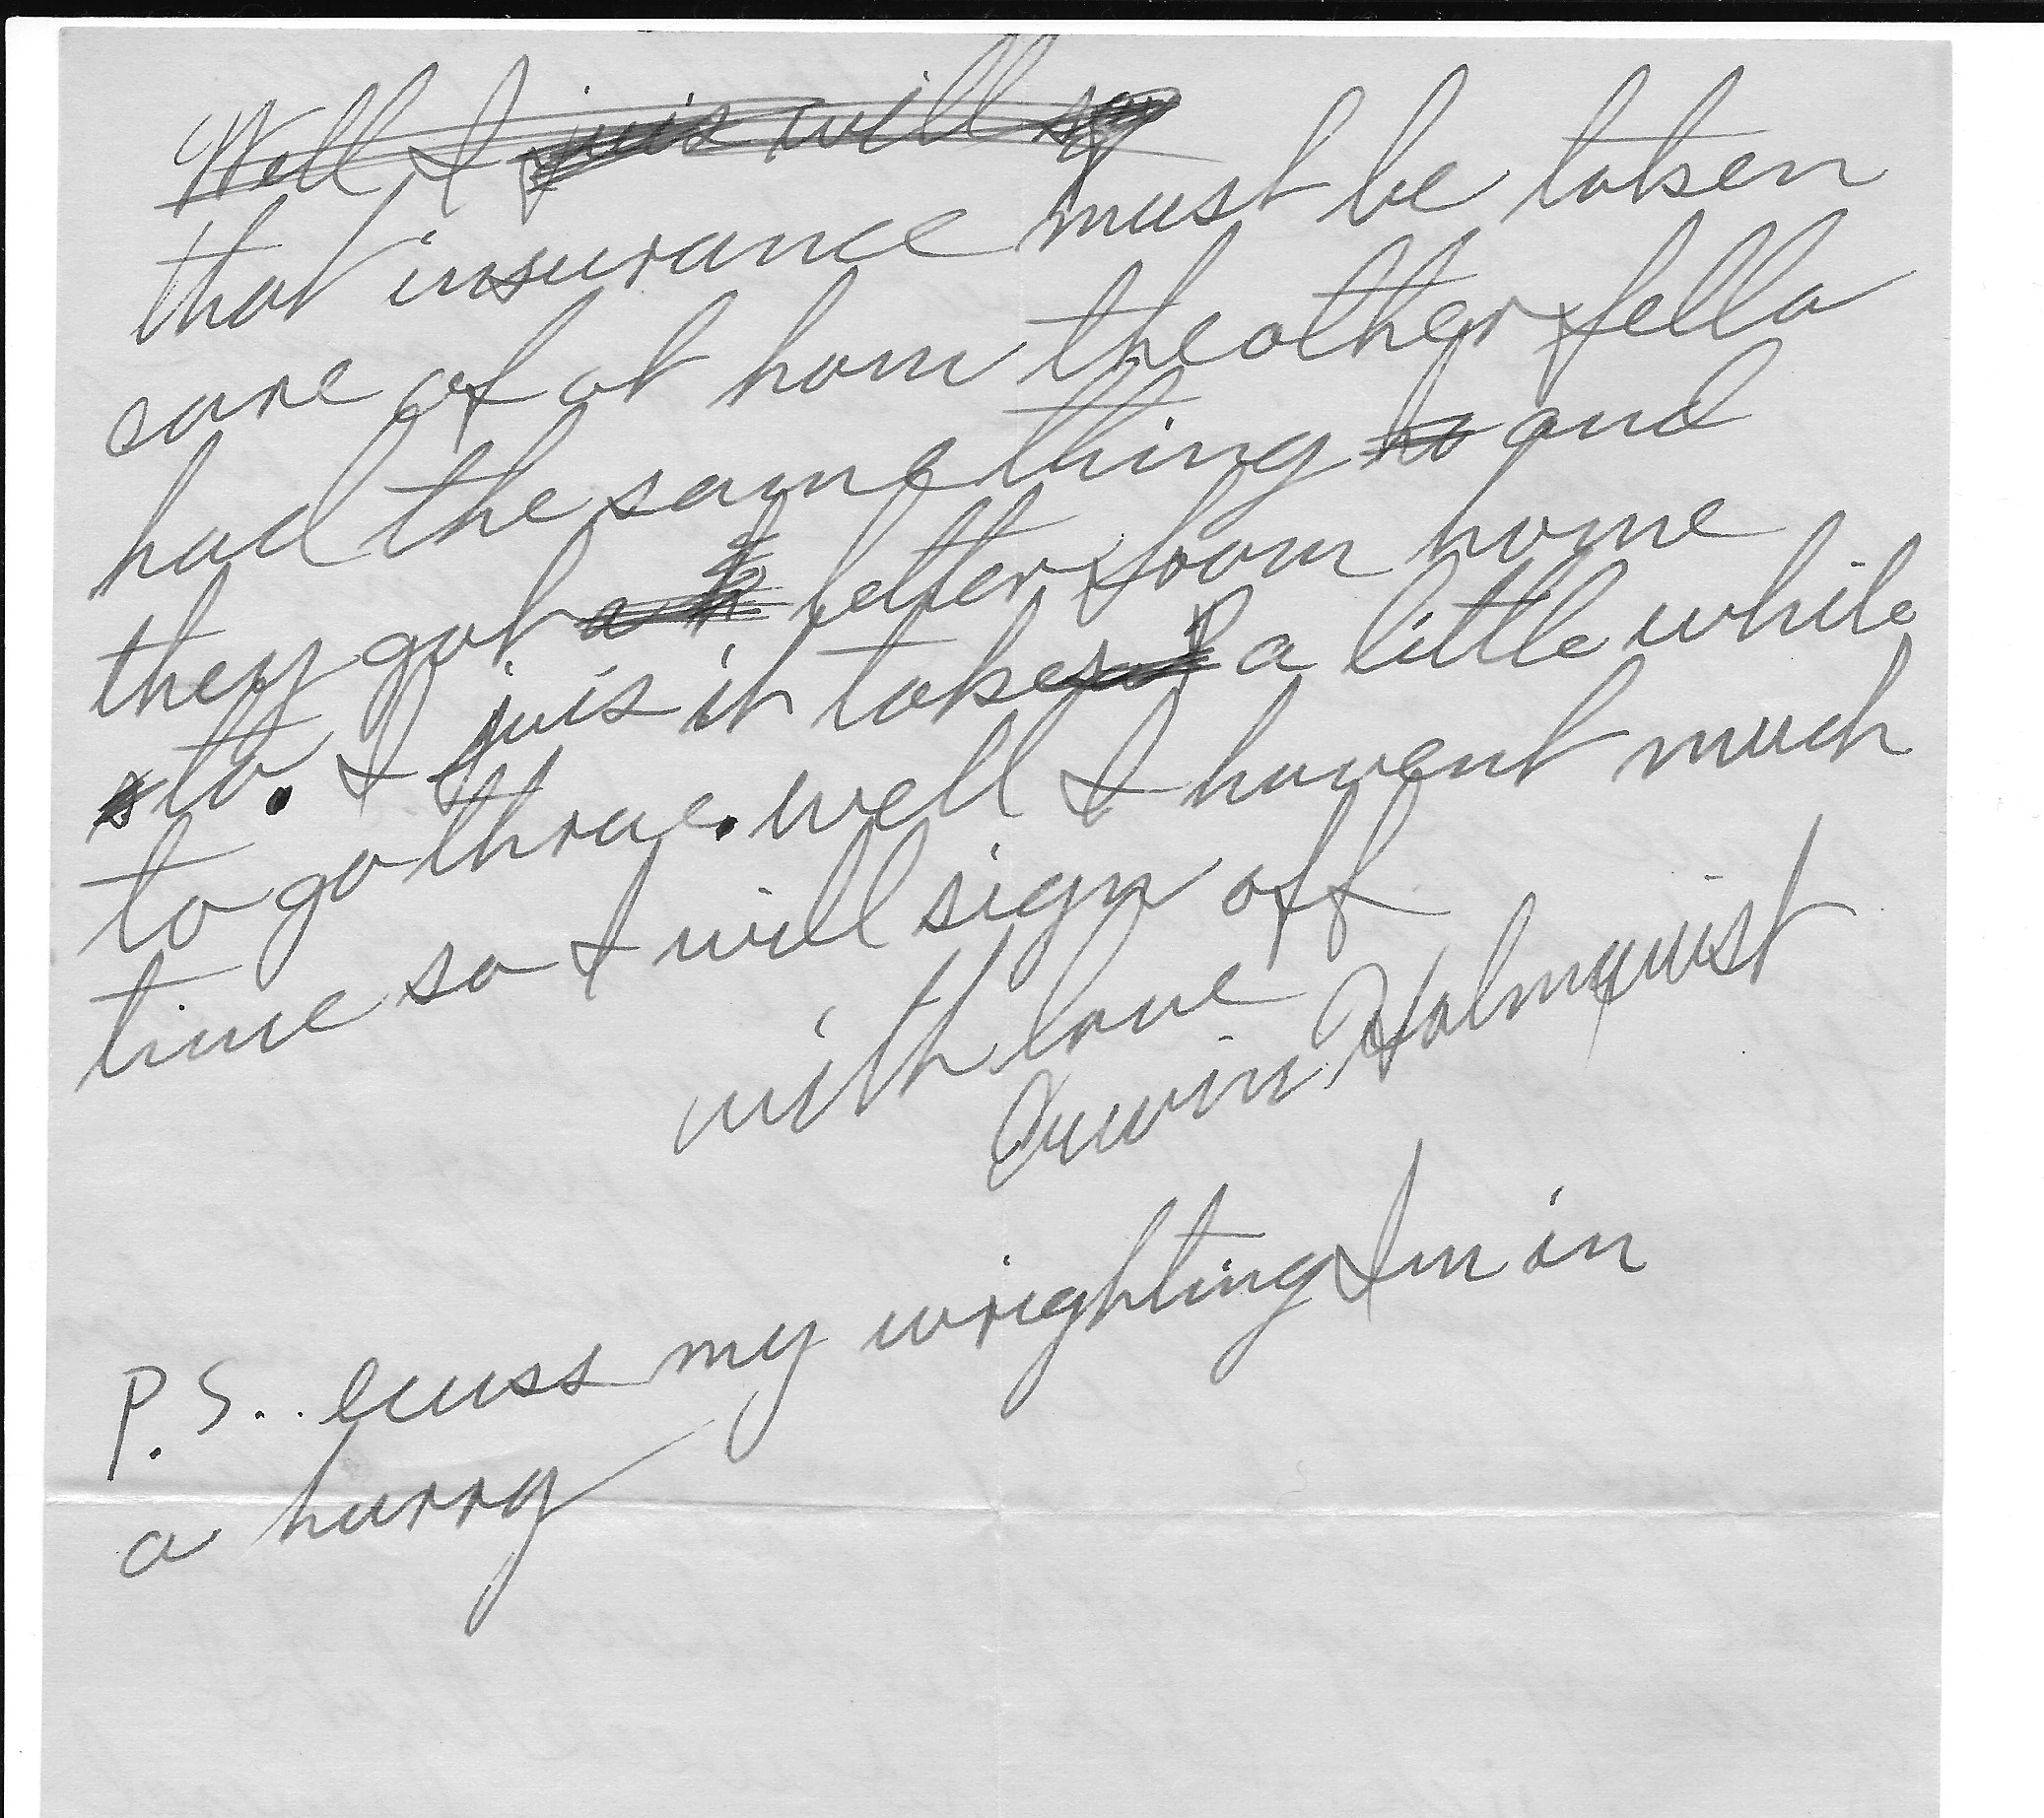 Well I juis will
that insurance must be taken
care of at hom the other fella
had the same thing to and
they got a letter from home
to. I juis it takes a little while
to go thrue. well I havent much
time so I will sign off
with love
Irwin Holmquist
P.S.. ecuss my wrighting Im in
a hurry